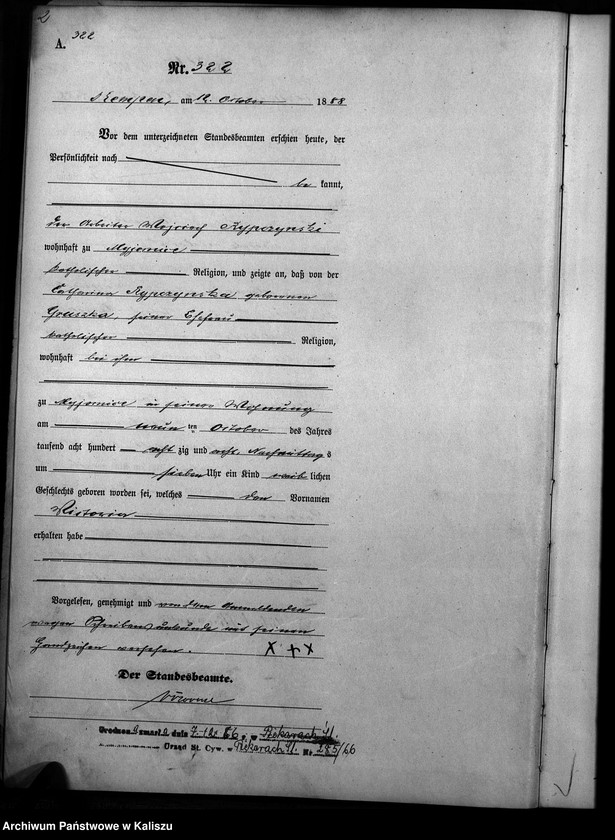 2
A. 322
Nr. 322
Kempen, am 12. October 1888
Vor dem unterzeichneten Standesbeamten erschien heute, der
Persönlichkeit nach
be kannt,
der Arbeiter Wojciech
wohnhaft zu Myjomice
katholischer Religion, und zeigte an, daß von der
Catharina geborenen
seiner Ehefrau
katholischer Religion,
wohnhaft bei ihm
zu Myjomice in seiner Wohnung
am neun ten October des Jahres
tausend acht hundert acht zig und acht, Nachmittag s
um sieben Uhr ein Kind weib lichen
Geschlechts geboren worden sei, welches den Vornamen
Victoria
erhalten habe
Vorgelesen, genehmigt und von dem Anmeldenden
wegen Schreibensunkunde mit seinem
Handzeichen versehen. X + X
Der Standesbeamte.
zmarł a dnia 7.12.66 w Piekarach Śl.
Urząd St. Cyw. w Piekarach Śl. Nr 285/66
Archiwum Państwowe w Kaliszu